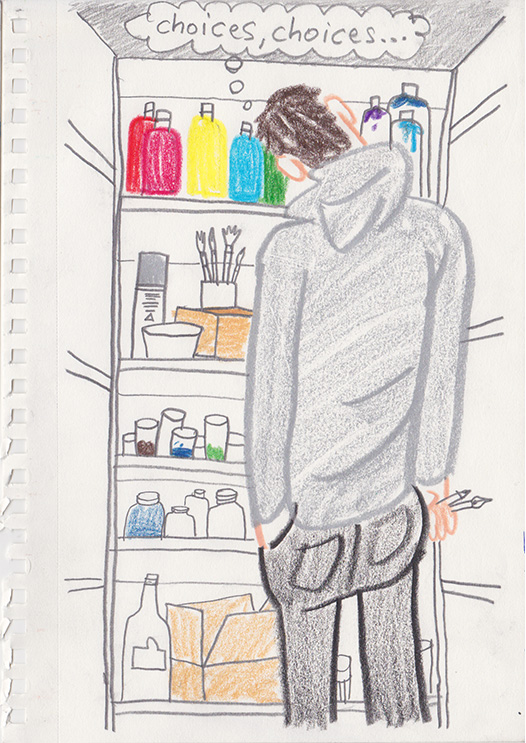 choices, choices...